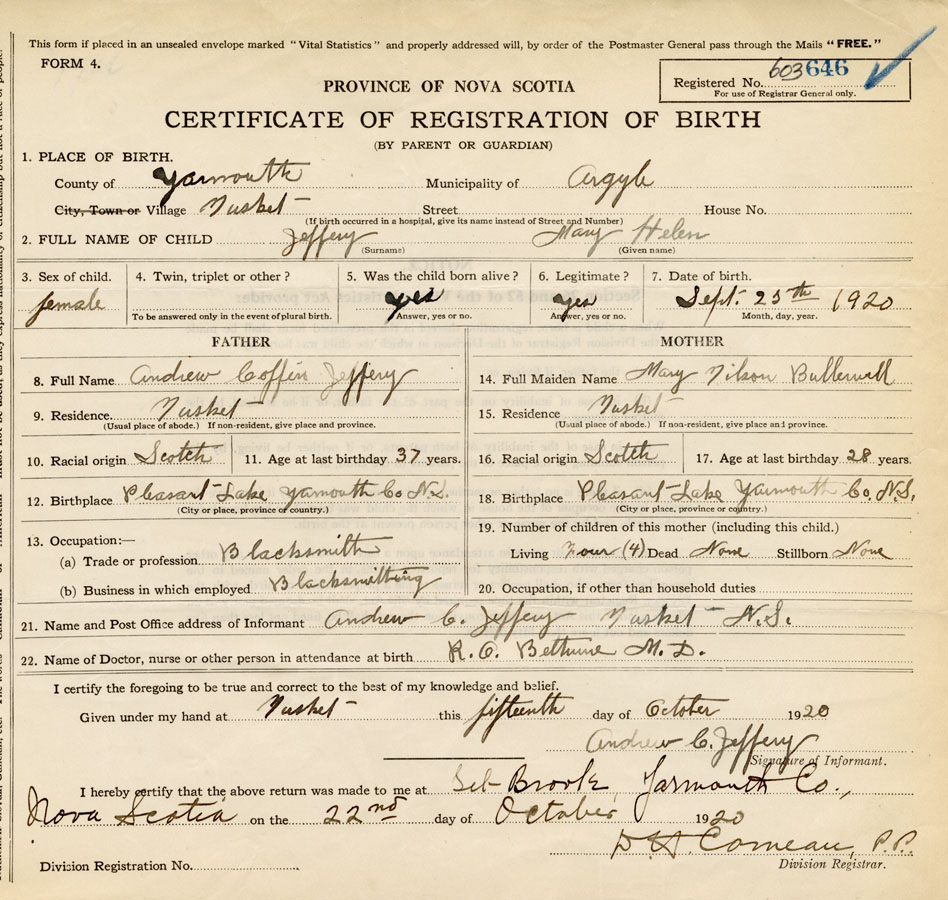 This form if placed in an unsealed envelope marked "Vital Statistics" and properly addressed will, by order of the Postmaster General pass through the Mails "FREE."
FORM 4.
Registered No. 603 646
For use of Registrar General only.
PROVINCE OF NOVA SCOTIA
CERTIFICATE OF REGISTRATION OF BIRTH
(BY PARENT OR GUARDIAN)
1. PLACE OF BIRTH.
County of Yarmouth Municipality of Argyle
City, Town or Village Tusket Street House No.
(If birth occurred in a hospital, give its name instead of Street and Number)
2. FULL NAME OF CHILD Jeffery Mary Helen
(Surname) (Given name)
3. Sex of child. 4. Twin, triplet or other? 5. Was the child born alive? 6. Legitimate? 7. Date of birth.
female yes yes Sept. 25th 1920
To be answered only in the event of plural birth. Answer, yes or no. Answer, yes or no. Month, day, year.
FATHER MOTHER
8. Full Name Andrew Coffin Jeffery 14. Full Maiden Name Mary Bullerwell
9. Residence. Tusket 15. Residence Tusket
(Usual place of abode.) If non-resident, give place and province. (Usual place of abode.) If non-resident, give place and province.
10. Racial origin Scotch 11. Age at last birthday 37 years. 16. Racial origin Scotch 17. Age at last birthday 28 years.
12. Birthplace Pleasant Lake Yarmouth Co N.S. 18. Birthplace Pleasant Lake Yarmouth Co, N.S.
(City or place, province or country.) (City or place, province or country.)
19. Number of children of this mother (including this child.)
13. Occupation:—
(a) Trade or profession Blacksmith Living Four (4) Dead None Stillborn None
(b) Business in which employed Blacksmithing 20. Occupation, if other than household duties
21. Name and Post Office address of Informant Andrew C. Jeffery Tusket N.S.
22. Name of Doctor, nurse or other person in attendance at birth R. O. Bethune M.D.
I certify the foregoing to be true and correct to the best of my knowledge and belief.
Given under my hand at Tusket this fifteenth day of October 1920
Andrew C. Jeffery
Signature of Informant.
I hereby certify that the above return was made to me at Sel Brook Yarmouth Co.,
Nova Scotia on the 22nd day of October 1920
D. H. Comeau, P.P.
Division Registrar.
Division Registration No.